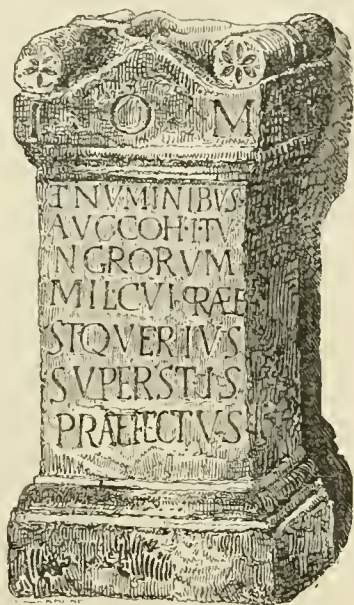 I O M
ETNVMINIBVS
AVGCOH·ITV
NGRORVM
MILCVI PRAE
STQVERIVS
SVPERSTIS
PRAEFECTVS